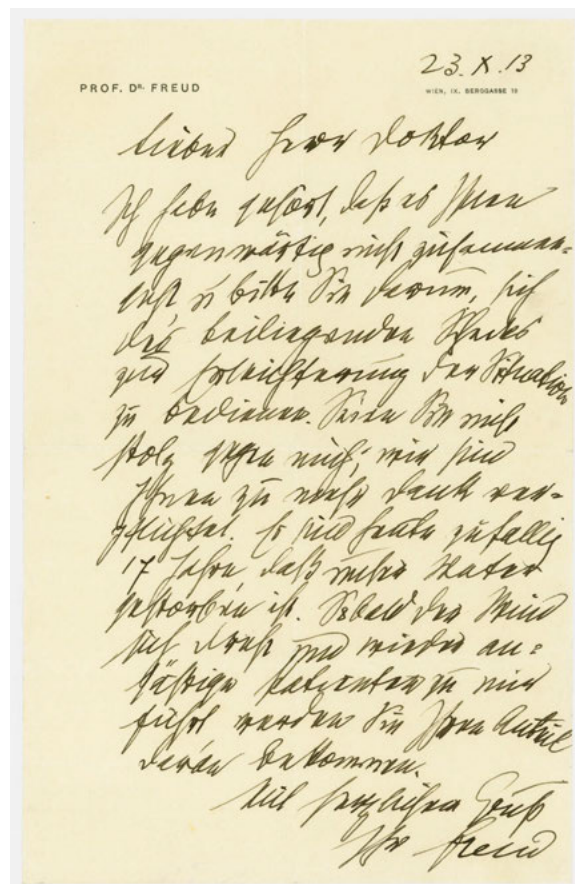 23. X. 13
PROF. DR. FREUD
WIEN, IX. BERGGASSE 19
Lieber Herr Doktor
Ich habe gehört, daß es Ihnen
gegenwärtig nicht zusammen-
geht u bitte Sie darum, sich
des beiliegenden Scheks
zur Erleichterung der Situation
zu bedienen. Seien Sie nicht
stolz gegen mich; wir sind
Ihnen zu mehr Dank ver-
pflichtet. Es sind heute zufällig
17 Jahre, daß mein Vater
gestorben ist. Sobald der Wind
sich dreht und wieder
Patienten zu mir
führt werden Sie Ihren Anteil
davon bekommen.
Mit herzlichem Gruß
Ihr Freud